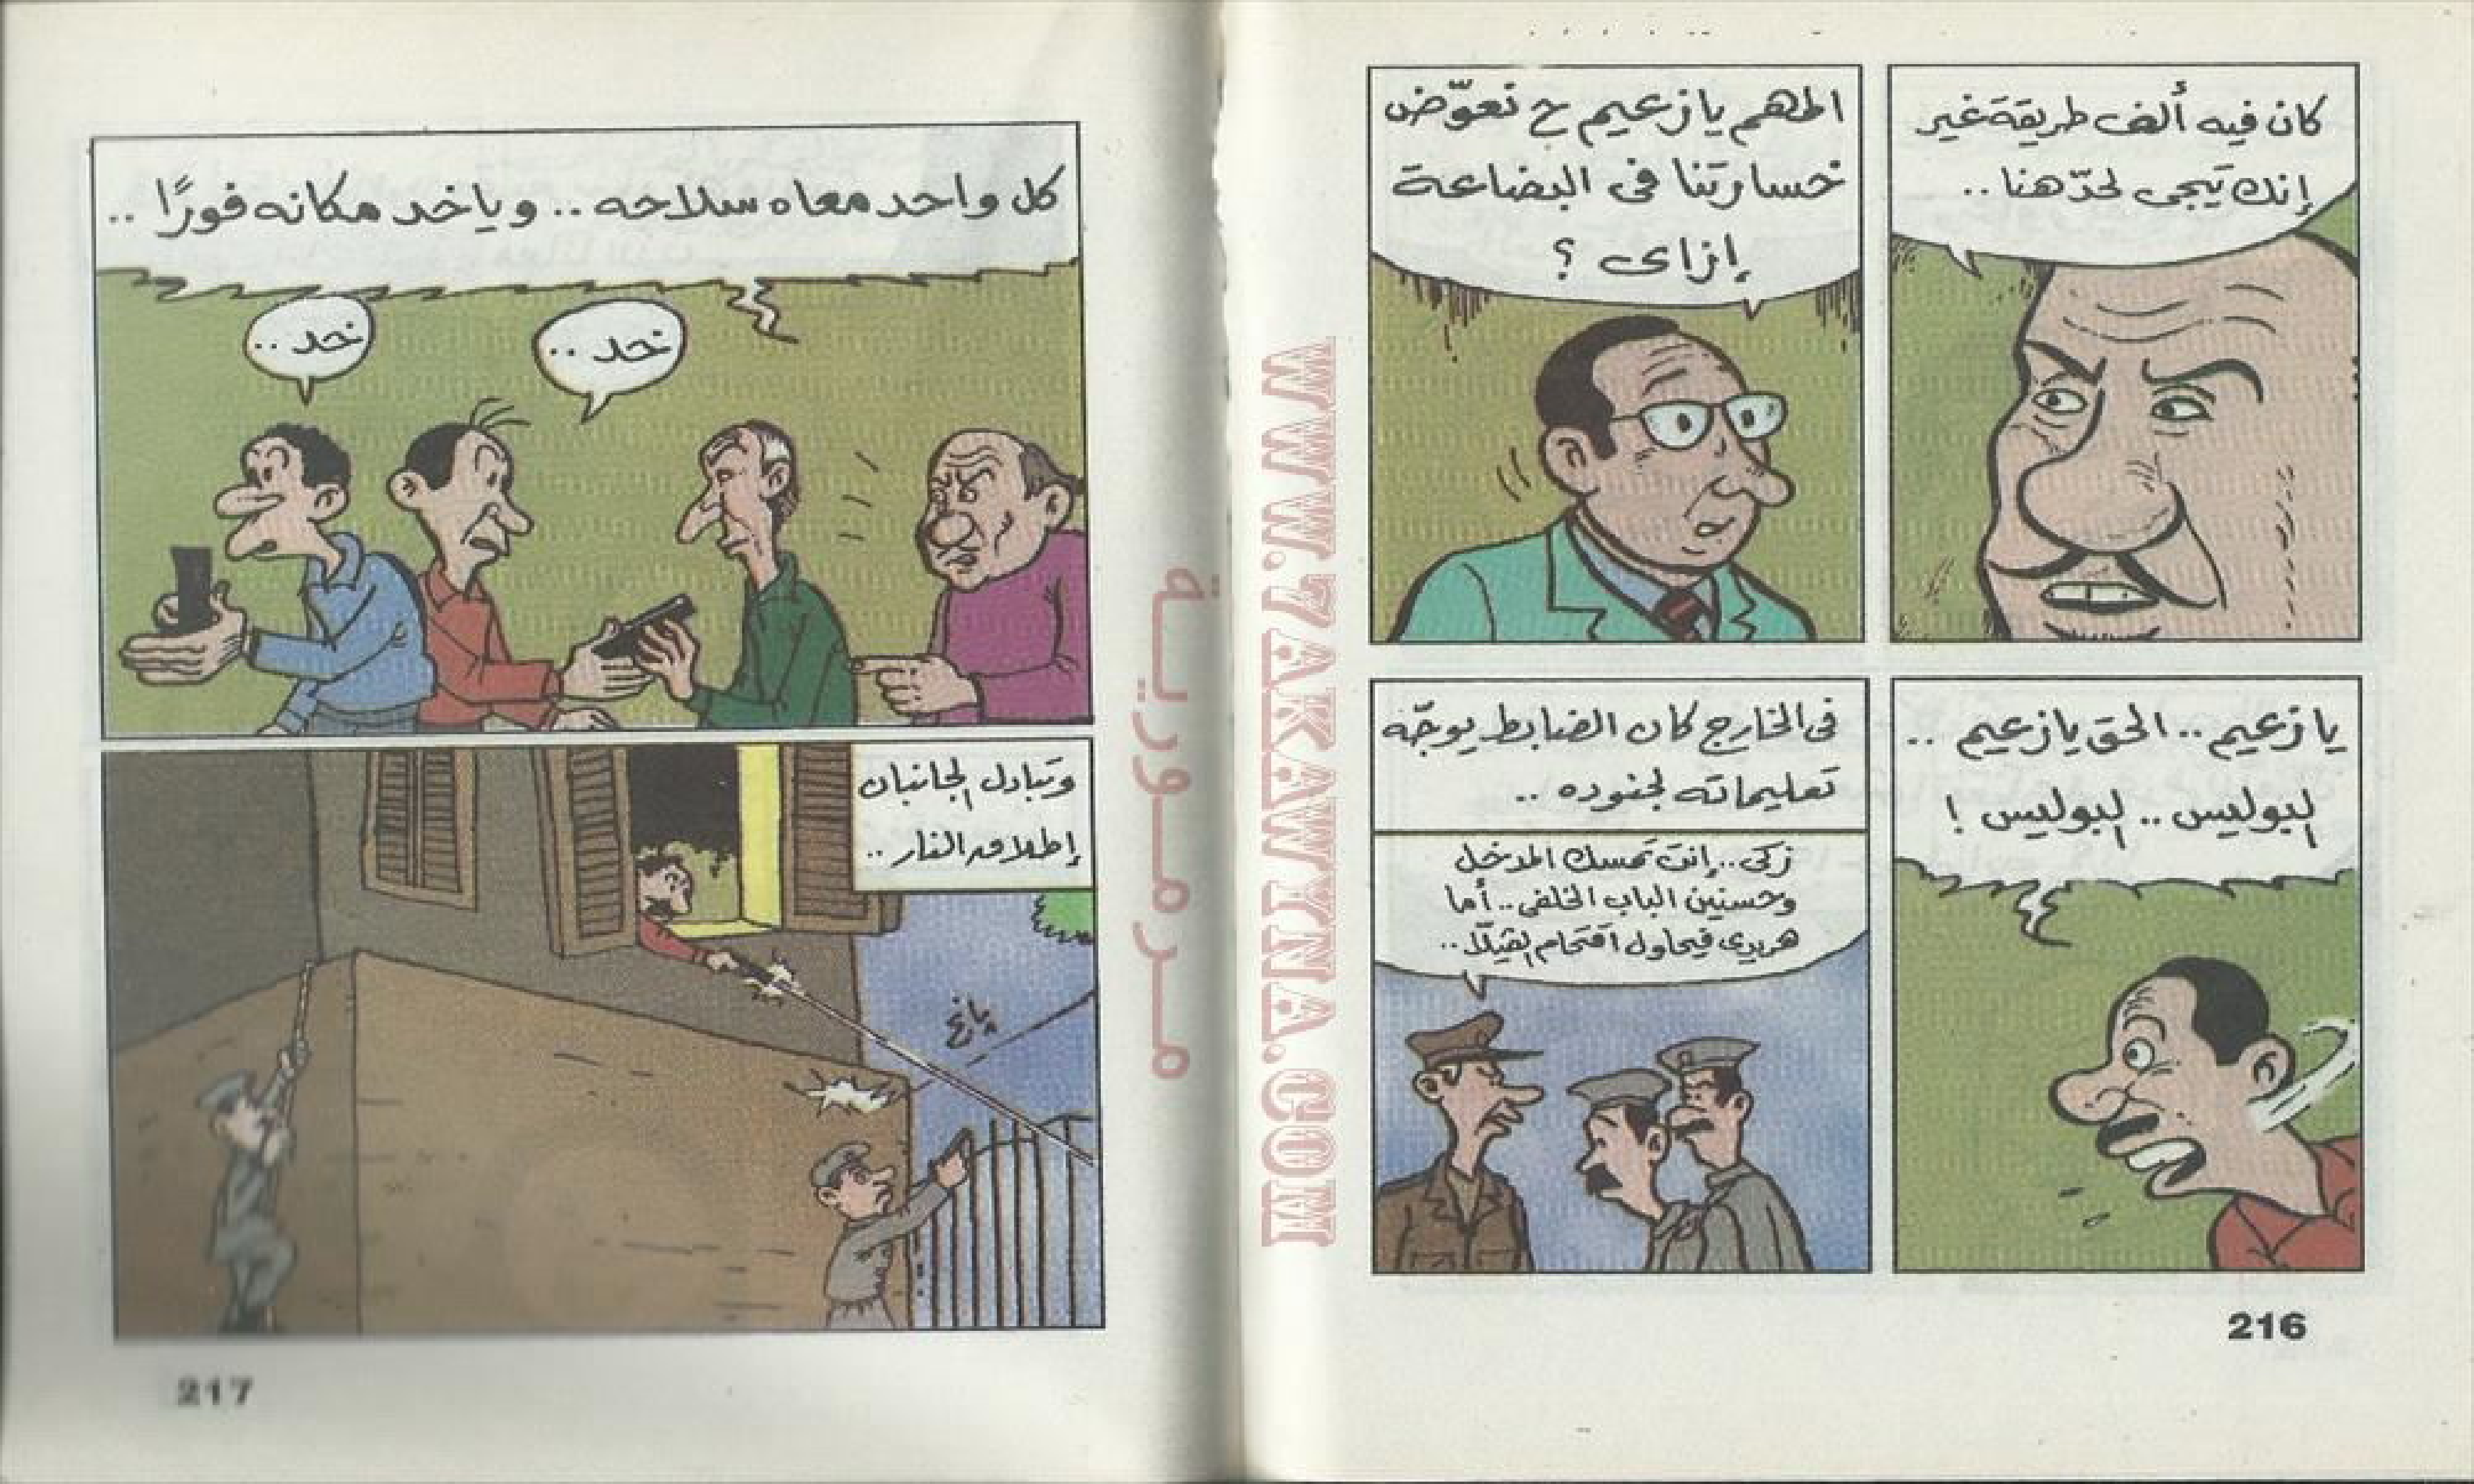 كان فيه ألف طريقة غير
إنك تيجى لحدّ هنا ..
المهم يا زعيم ح نعوّض
خسارتنا فى البضاعة
إزاى ؟
يا زعيم .. الحق يا زعيم ..
البوليس .. البوليس !
فى الخارج كان الضابط يوجّه
تعليماته لجنوده ..
زكى .. إنت تمسك المدخل
وحسنين الباب الخلفى .. أما
هريدى فيحاول اقتحام الڤيلّا ..
216
كل واحد معاه سلاحه .. وياخد مكانه فورًا ..
خد ..
خد ..
وتبادل الجانبان
إطلاق النار ..
217
WWW.7AKAWYNA.COM
مرمورية